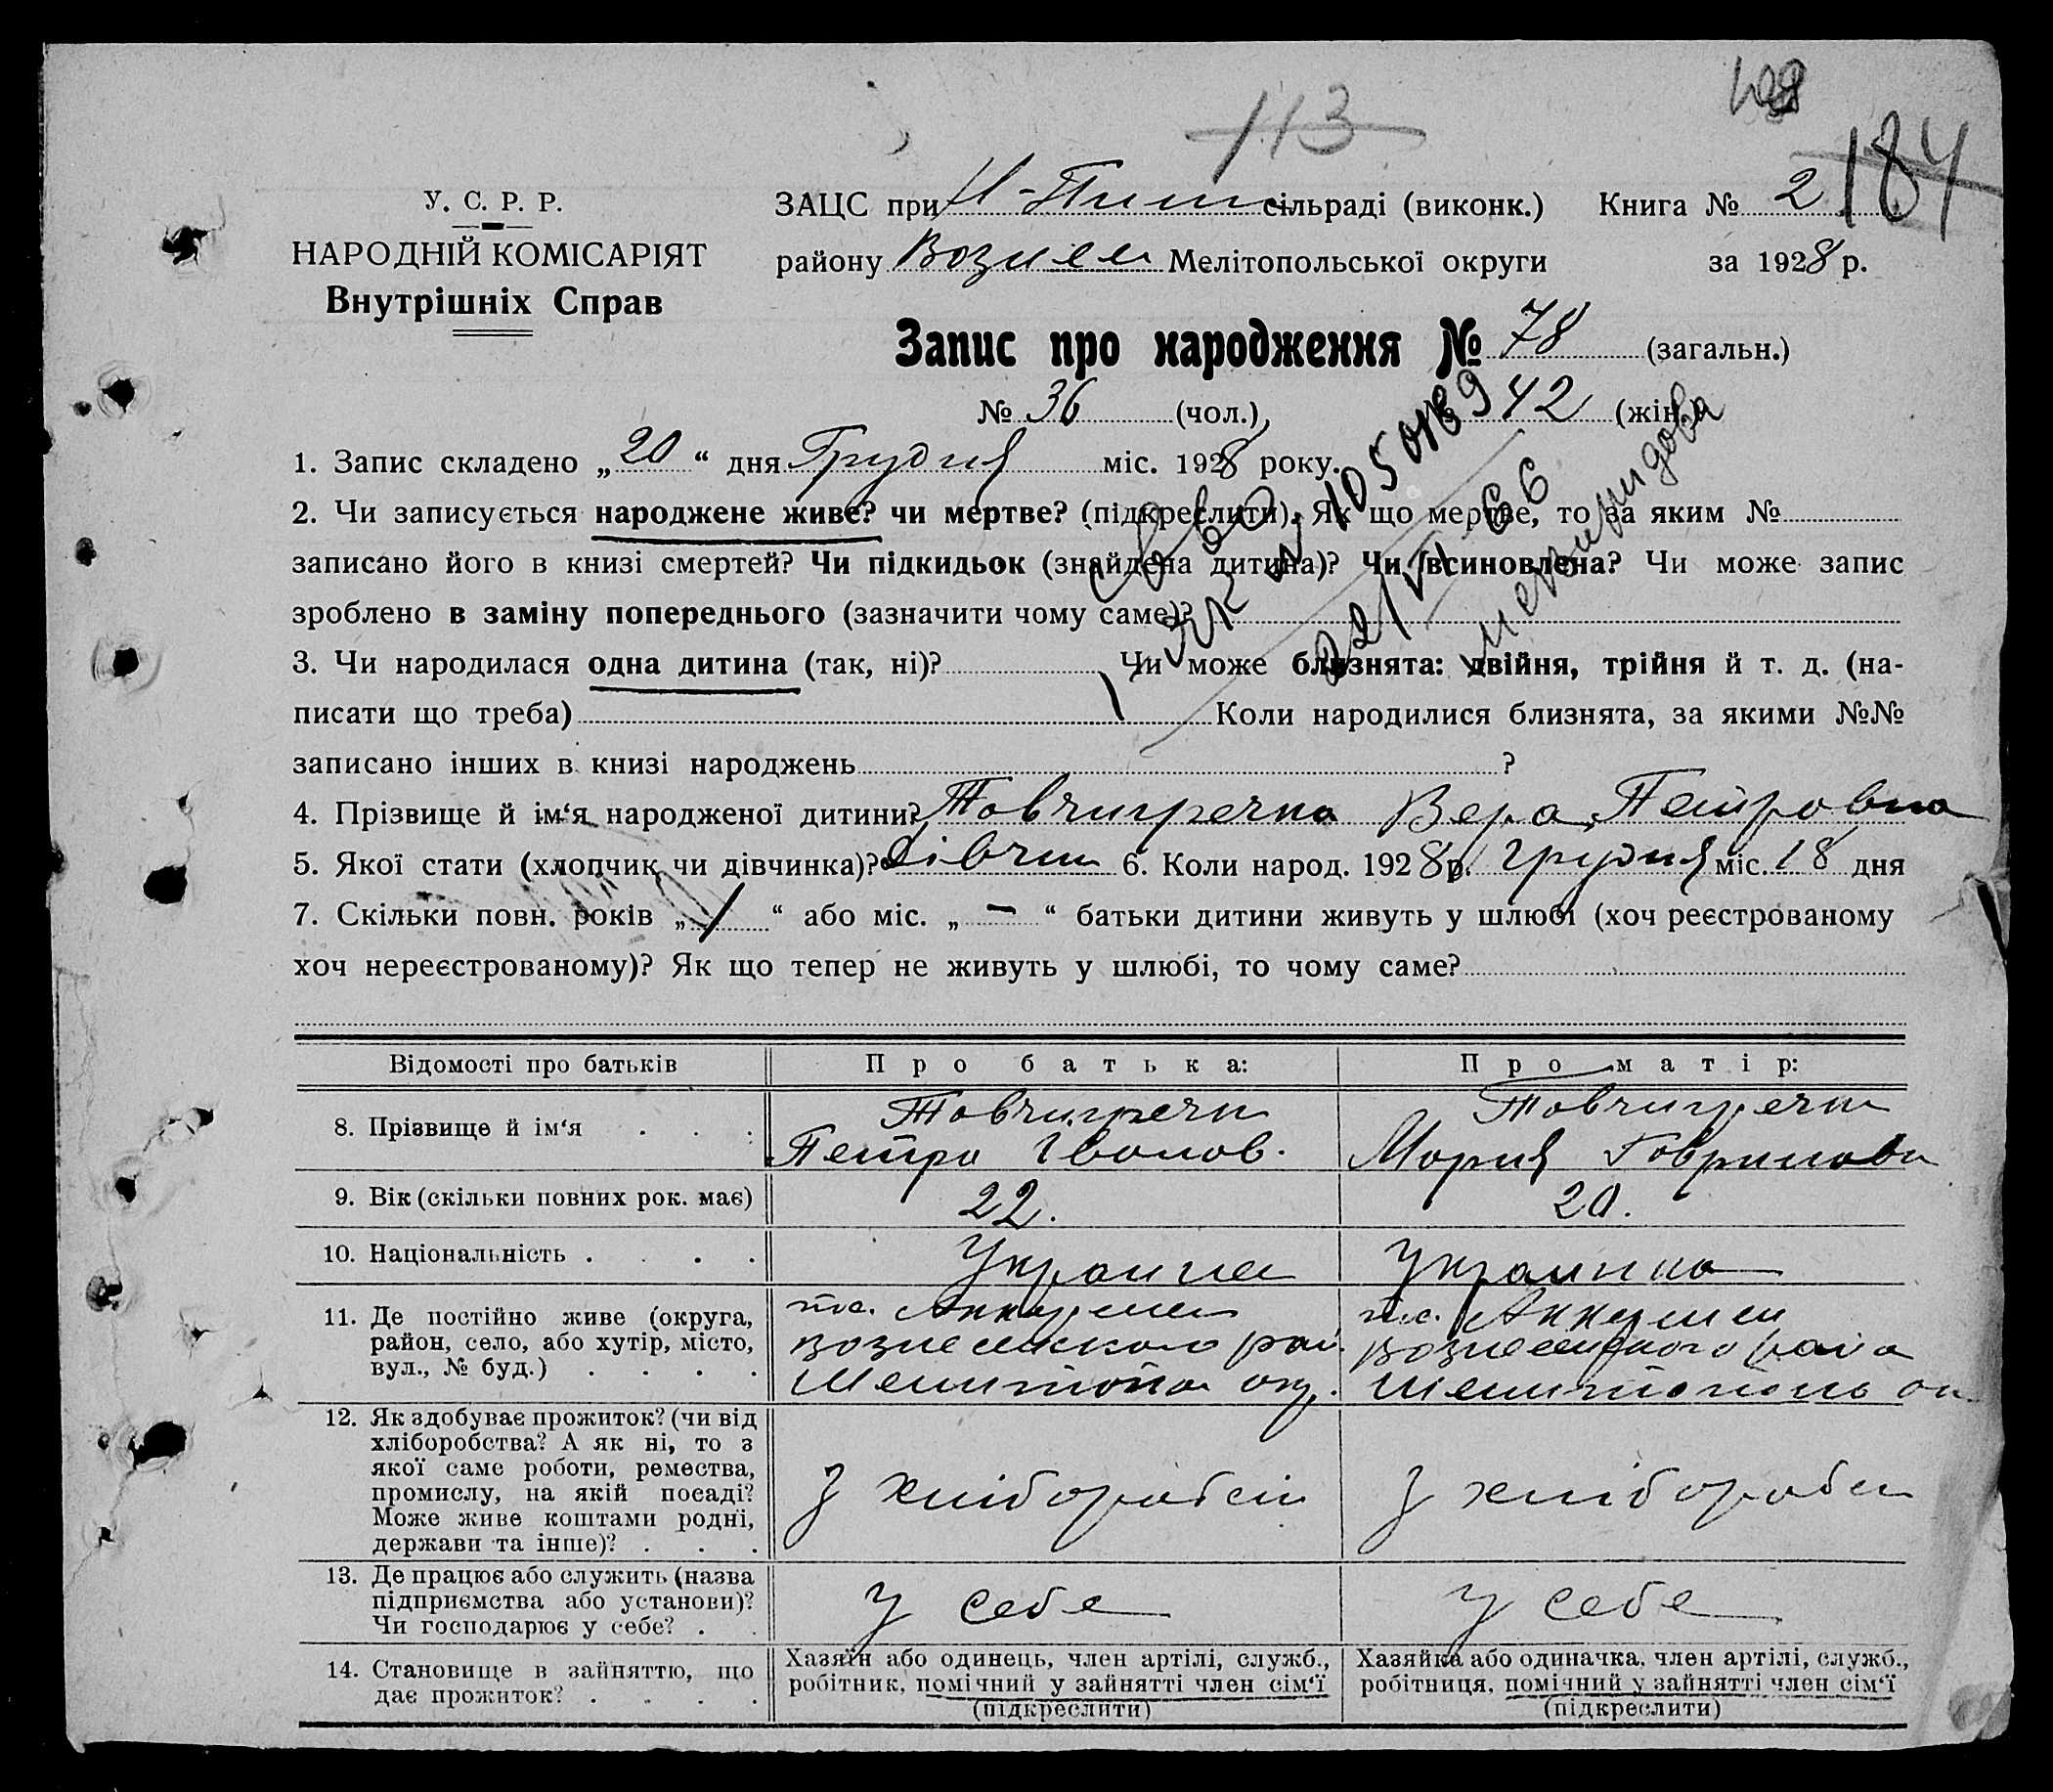 113
184
У. С. Р. Р.
НАРОДНІЙ КОМІСАРІЯТ
Внутрішніх Справ
ЗАЦС при Н-Пит сільраді (виконк.) Книга № 2
району Вознесен Мелітопольської округи за 1928 р.
Запис про народження № 78 (загальн.)
№ 36 (чол.), 42 (жін.)
1. Запис складено „20“ дня Грудня міс. 1928 року.
2. Чи записується народжене живе? чи мертве? (підкреслити). Як що мертве, то за яким №
записано його в книзі смертей? Чи підкидьок (знайдена дитина)? Чи всиновлена? Чи може запис
зроблено в заміну попереднього (зазначити чому саме)?
3. Чи народилася одна дитина (так, ні)? Чи може близнята: двійня, трійня й т. д. (на-
писати що треба) Коли народилися близнята, за якими №№
записано інших в книзі народжень ?
4. Прізвище й ім‘я народженої дитини? Товчигречка Вера Петровна
5. Якої стати (хлопчик чи дівчинка)? дівчин 6. Коли народ. 1928 р. грудня міс. 18 дня
7. Скільки повн. років „1“ або міс. „-“ батьки дитини живуть у шлюбі (хоч реєстрованому
хоч нереєстрованому)? Як що тепер не живуть у шлюбі, то чому саме?
22/VI-66
Відомості про батьків Про батька: Про матір:
8. Прізвище й ім‘я . . . Товчигречк Петро Іванов. Товчигречк Мария Гаврилова
9. Вік (скільки повних рок. має) 22. 20.
10. Національність . . . . Украинец Украинка
11. Де постійно живе (округа, район, село, або хутір, місто, вул., № буд.) . . . . Аннермен вознесенского рай. Мелитопол окр. Аннермен вознесенского райа Мелитополь ок
12. Як здобуває прожиток? (чи від хліборобства? А як ні, то з якої саме роботи, ремества, промислу, на якій посаді? Може живе коштами родні, держави та інше)? . . . З хліборобсті З хліборобст
13. Де працює або служить (назва підприємства або установи)? Чи господарює у себе? . . У себе У себе
14. Становище в зайняттю, що дає прожиток? . . . . Хазяїн або одинець, член артілі, служб., робітник, помічний у зайнятті член сім‘ї (підкреслити) Хазяйка або одиначка, член артілі, служб., робітниця, помічний у зайнятті член сім‘ї (підкреслити)